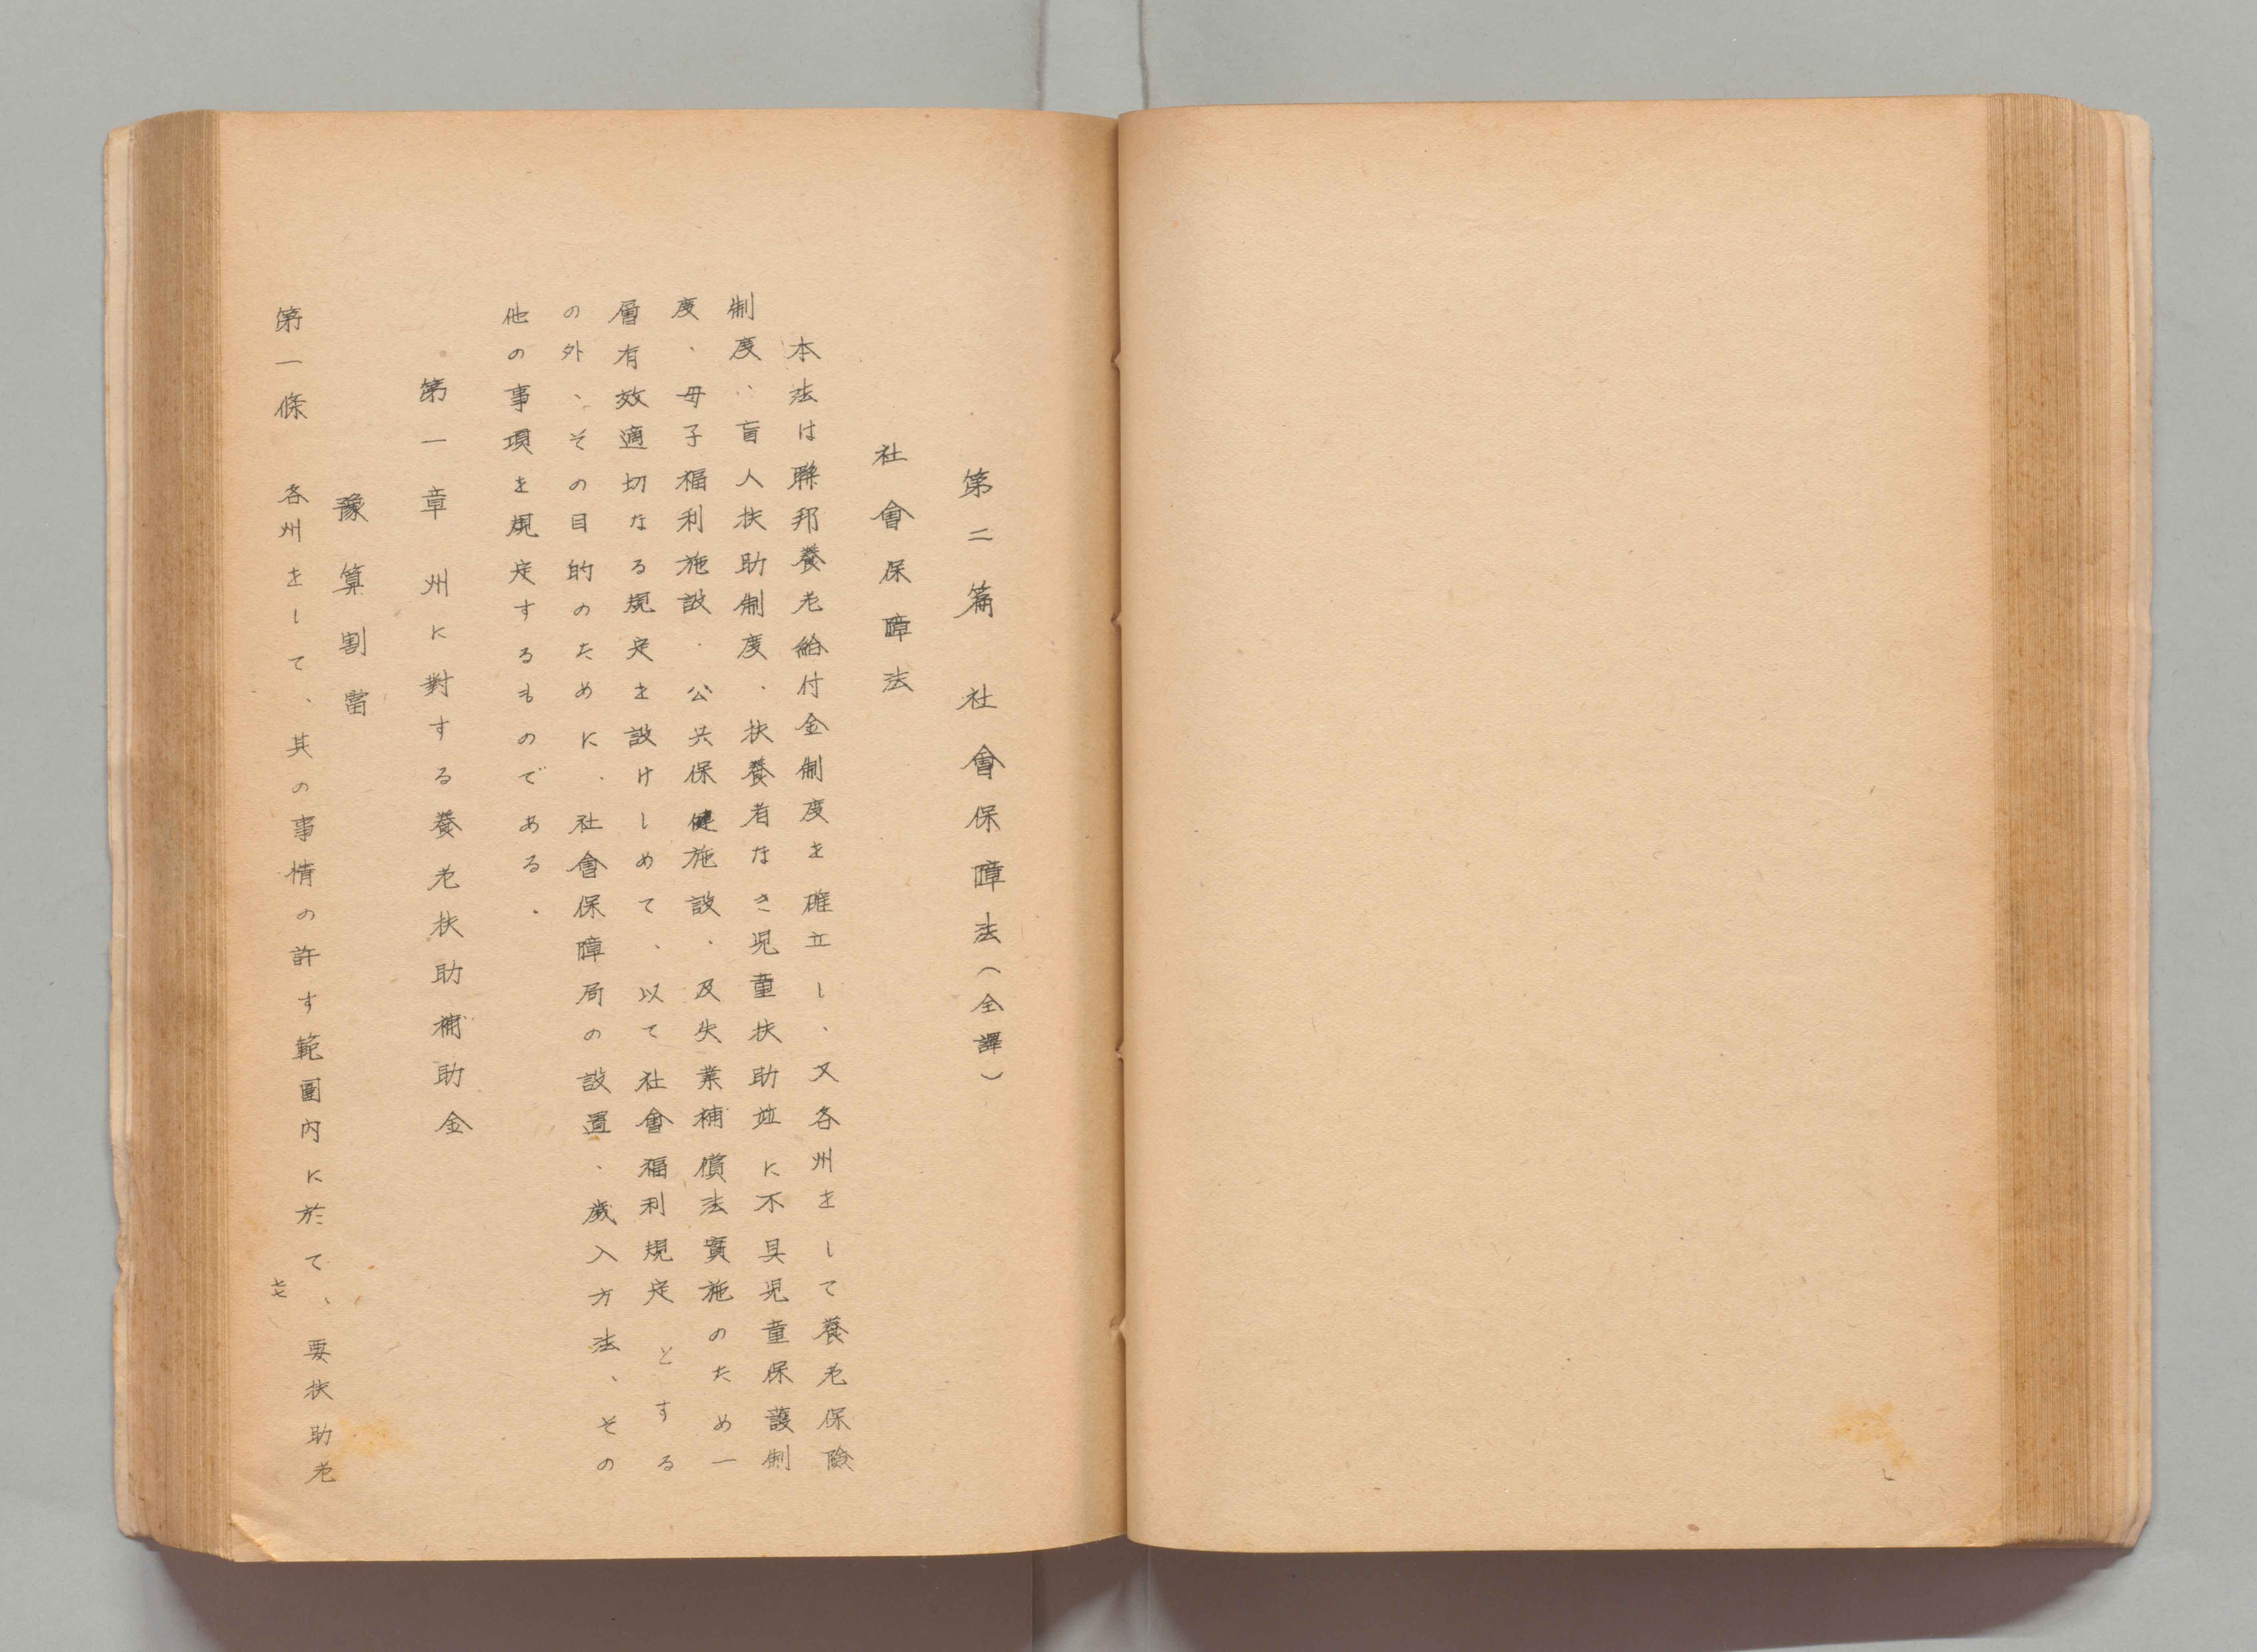 第二篇　社會保障法（全譯）
社會保障法
本法は聯邦養老給付金制度を確立し、又各州をして養老保險
制度、盲人扶助制度、扶養者なき児童扶助並に不具児童保護制
度、母子福利施設、公共保健施設、及失業補償法實施のため一
層有效適切なる規定を設けしめて、以て社會福利規定とする
の外、その目的のために、社會保障局の設置、歲入方法、その
他の事項を規定するものである。
第一章　州に對する養老扶助補助金
豫算割當
第一條　各州をして、其の事情の許す範圍內に於て、要扶助老